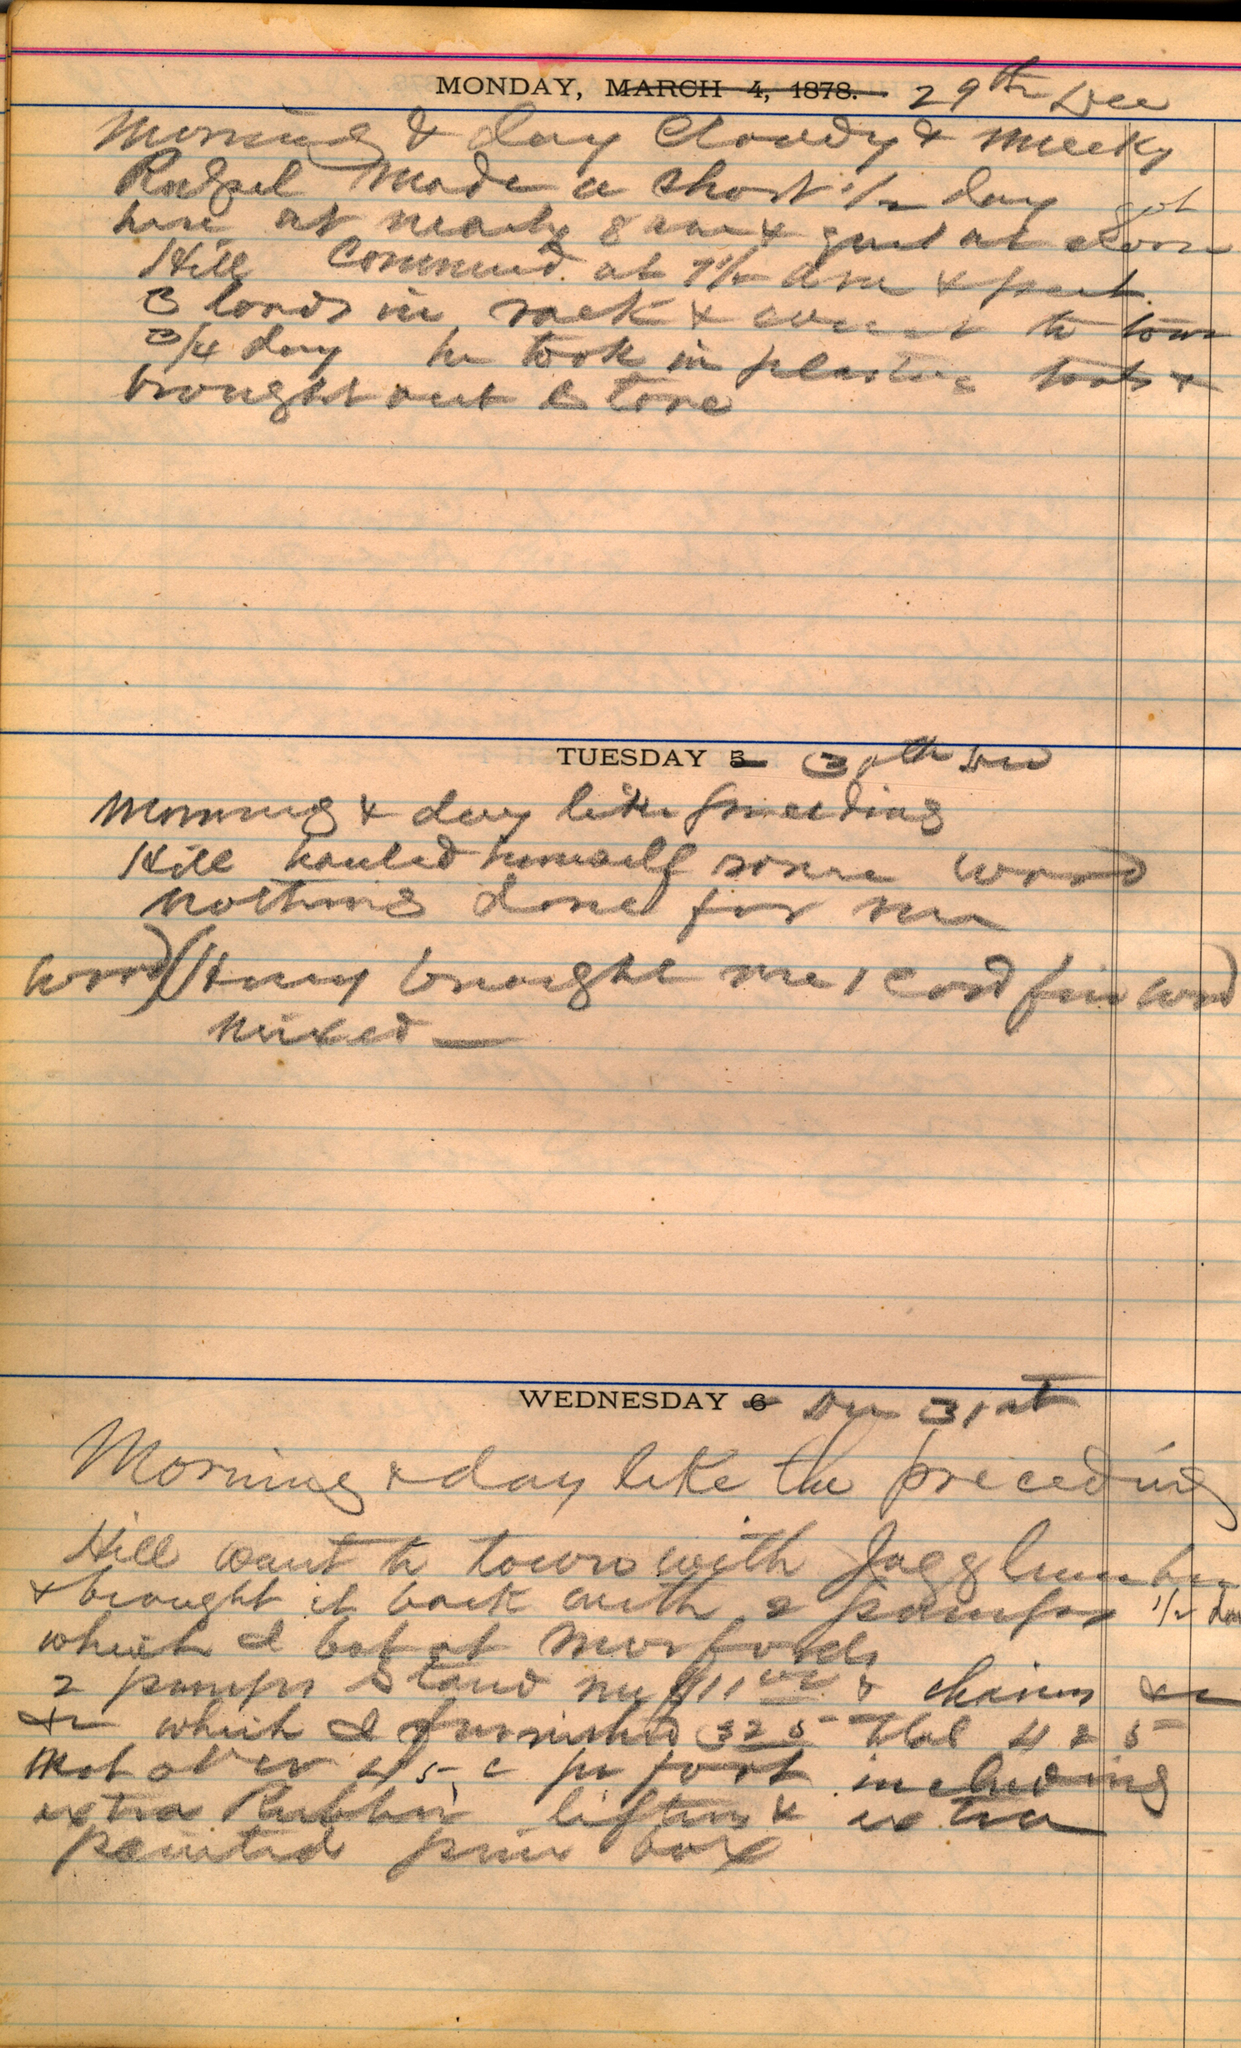 MONDAY, MARCH 4, 1878. 29th Dec
Morning & day Cloudy & mucky
made a short 1/2 day got
here at nearly 8 am & quit at
Hill Commend. at 7 1/2 am & put
3 loads in rack & went to town
3/4 day he took in tools &
brought out Stone
TUESDAY 5 30th Dec
Morning & day like preceeding
Hill hauled himself some wood
nothing done for me
Wood) (Huey brought me 1 cord fire wood
mixed —
WEDNESDAY 6 Dec 31st
Morning & day like the preceding
Hill went to town with Jagg lumber
& brought it back with 2 pumps 1/2 day
which I bot at Morfords
2 pumps Stand me $11 00 & chains &c
&c which I furnished 325 total 425
not over 45 c per foot including
extra Rubber lifters & extra
painted pine box